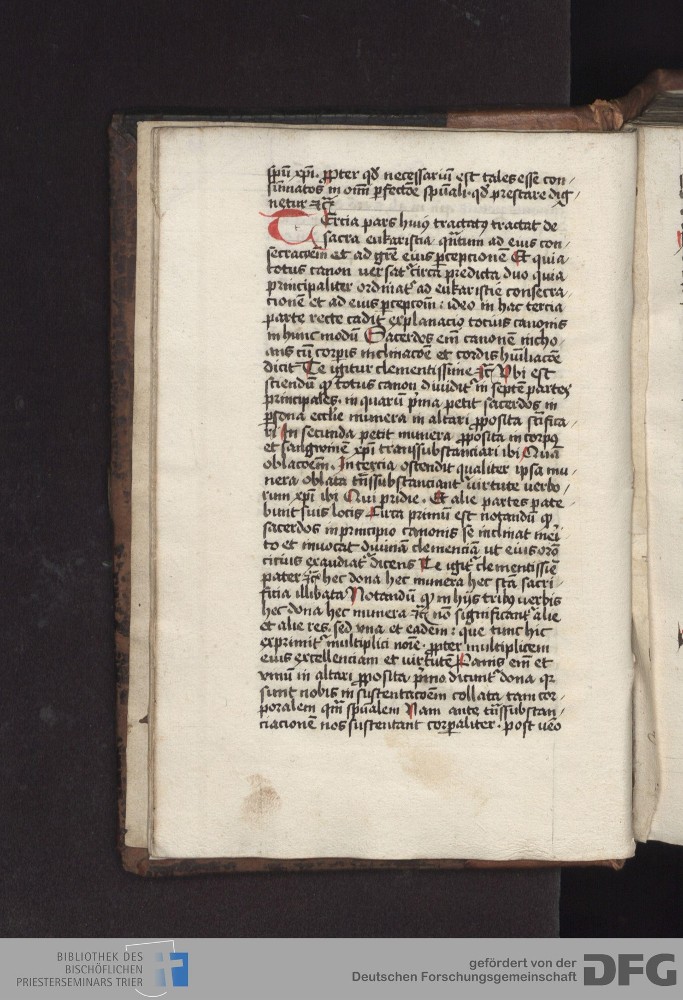 spū xpī. ꝓpter qd necessariū est tales esse con
sūmatos in om̄i ꝑfectōe spūali. qd prestare dig
netur ⁊c̄
Tercia pars huiꝰ tractatꝰ tractat de
sacra eukaristia quātum ad eius con
secracōem et ad gr̄e eius ꝑcepcionē Et quia
totus canon versat᷑ circa predicta duo quia
principaliter ordinat᷑ ad eukaristie consecra
cionē et ad eius ꝑcepcoīn : ideo in hac tercia
parte recte cadit explanacio totius canonis
in hunc modū Sacerdos em̄ canonē incho
ans cū corpis inclinacōe et cordis hūiliacōe
dicit Te igitur clementissime ⁊c̄ Vbi est
sciendū ꝙ totus canon diuidit᷑ in septē partes
principales. in quarū p̄ma petit sacerdos in
ꝑsona ecclie munera in altari ꝓposita sc̄ifica
ri In secunda petit munera ꝓposita in corpꝰ
et sangwinē xpī transsubstanciari ibi Quā
oblacōem. In tercia ostendit qualiter ipsa mu
nera oblata tn̄ssubstanciant᷑ virtute verbo
rum xpī ibi Qui pridie. Et alie partes pate
bunt suis locis Circa primū est notandū ꝙ
sacerdos in principio canonis se inclinat meri
to et inuocat diuinā clemenciā ut eius orō
cicius exaudiat᷑ dicens Te igit᷑ clementissiē
pater ⁊c̄ hec dona hec munera hec sc̄a sacri
ficia illibata Notandū ꝙ in hijs tribꝰ verbis
hec dona hec munera ⁊c̄ nō significant᷑ alie
et alie res. sed vna et eadem : que tunc hic
exprimit᷑ multiplici noīe. ꝓpter multiplicem
eius excellenciam et virtutē Panis em̄ et
vinū in altari ꝓposita p̄mo dicunt᷑ dona qr
sunt nobis in sustentacōem collata tam cor
poralem qm̄ spūalem Nam ante tn̄ssubstan
ciacionē nos sustentant corꝑaliter. post ūeo
BIBLIOTHEK DES
BISCHÖFLICHEN
PRIESTERSEMINARS TRIER
gefördert von der
Deutschen Forschungsgemeinschaft
DFG